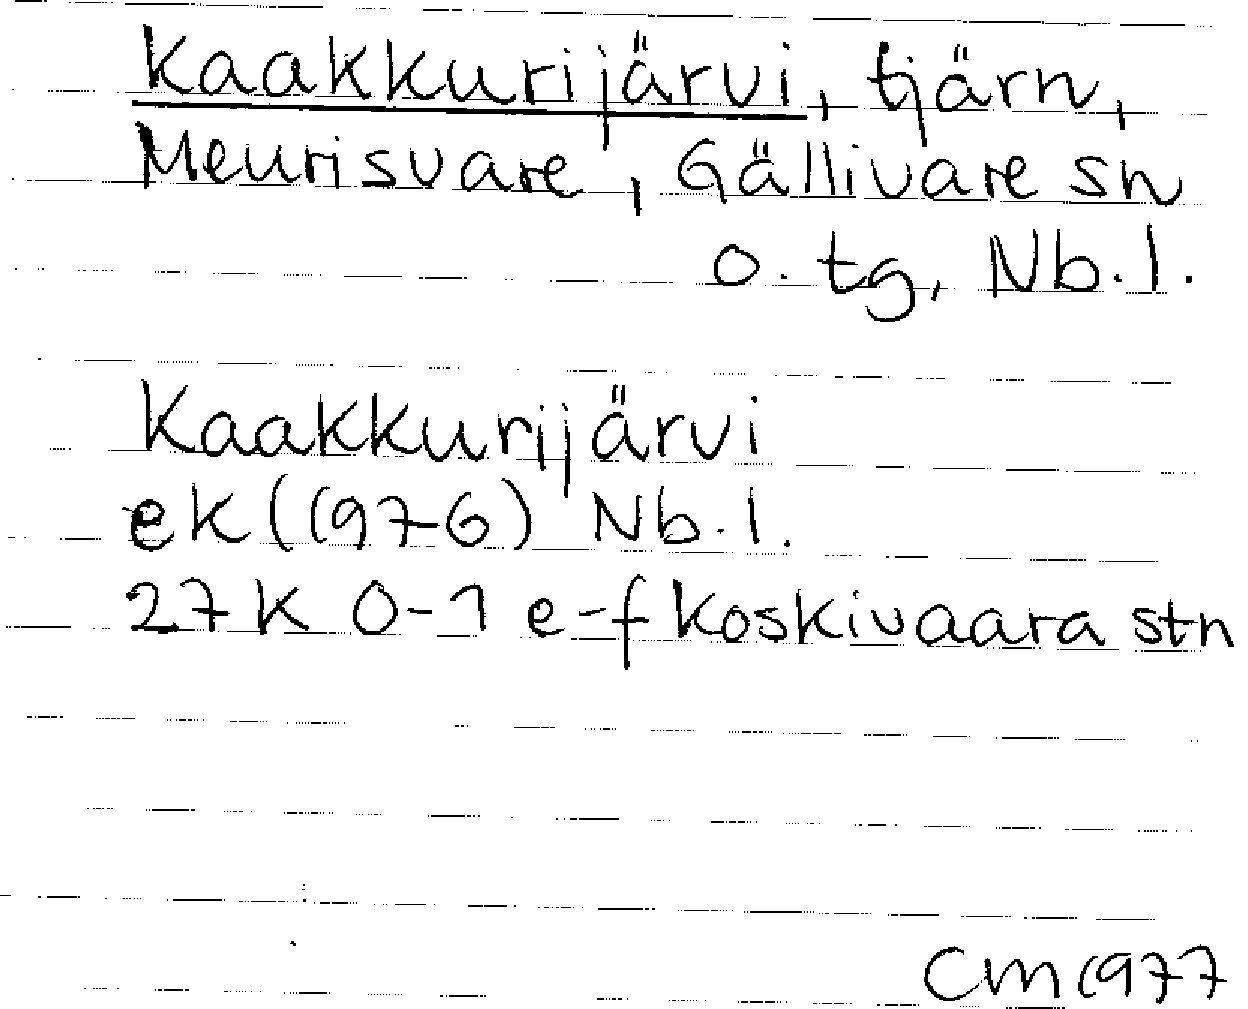 Kaakkurijärvi, tjärn,
Meurisvare, Gällivare sn
o. tg, Nb. l.
Kaakkurijärvi
ek (1976) Nb. l.
27 K 0-1 e-f Koskivaara stn
CM 1977